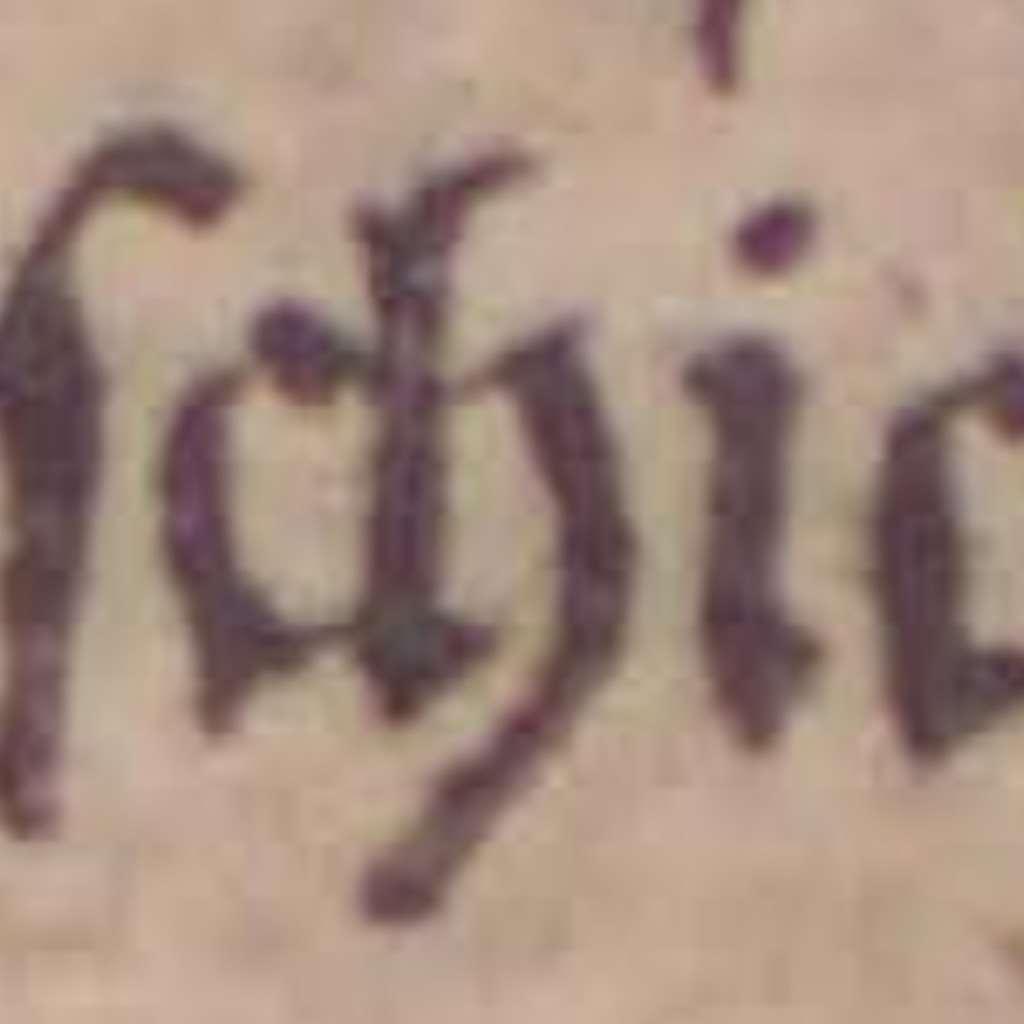 ſchic